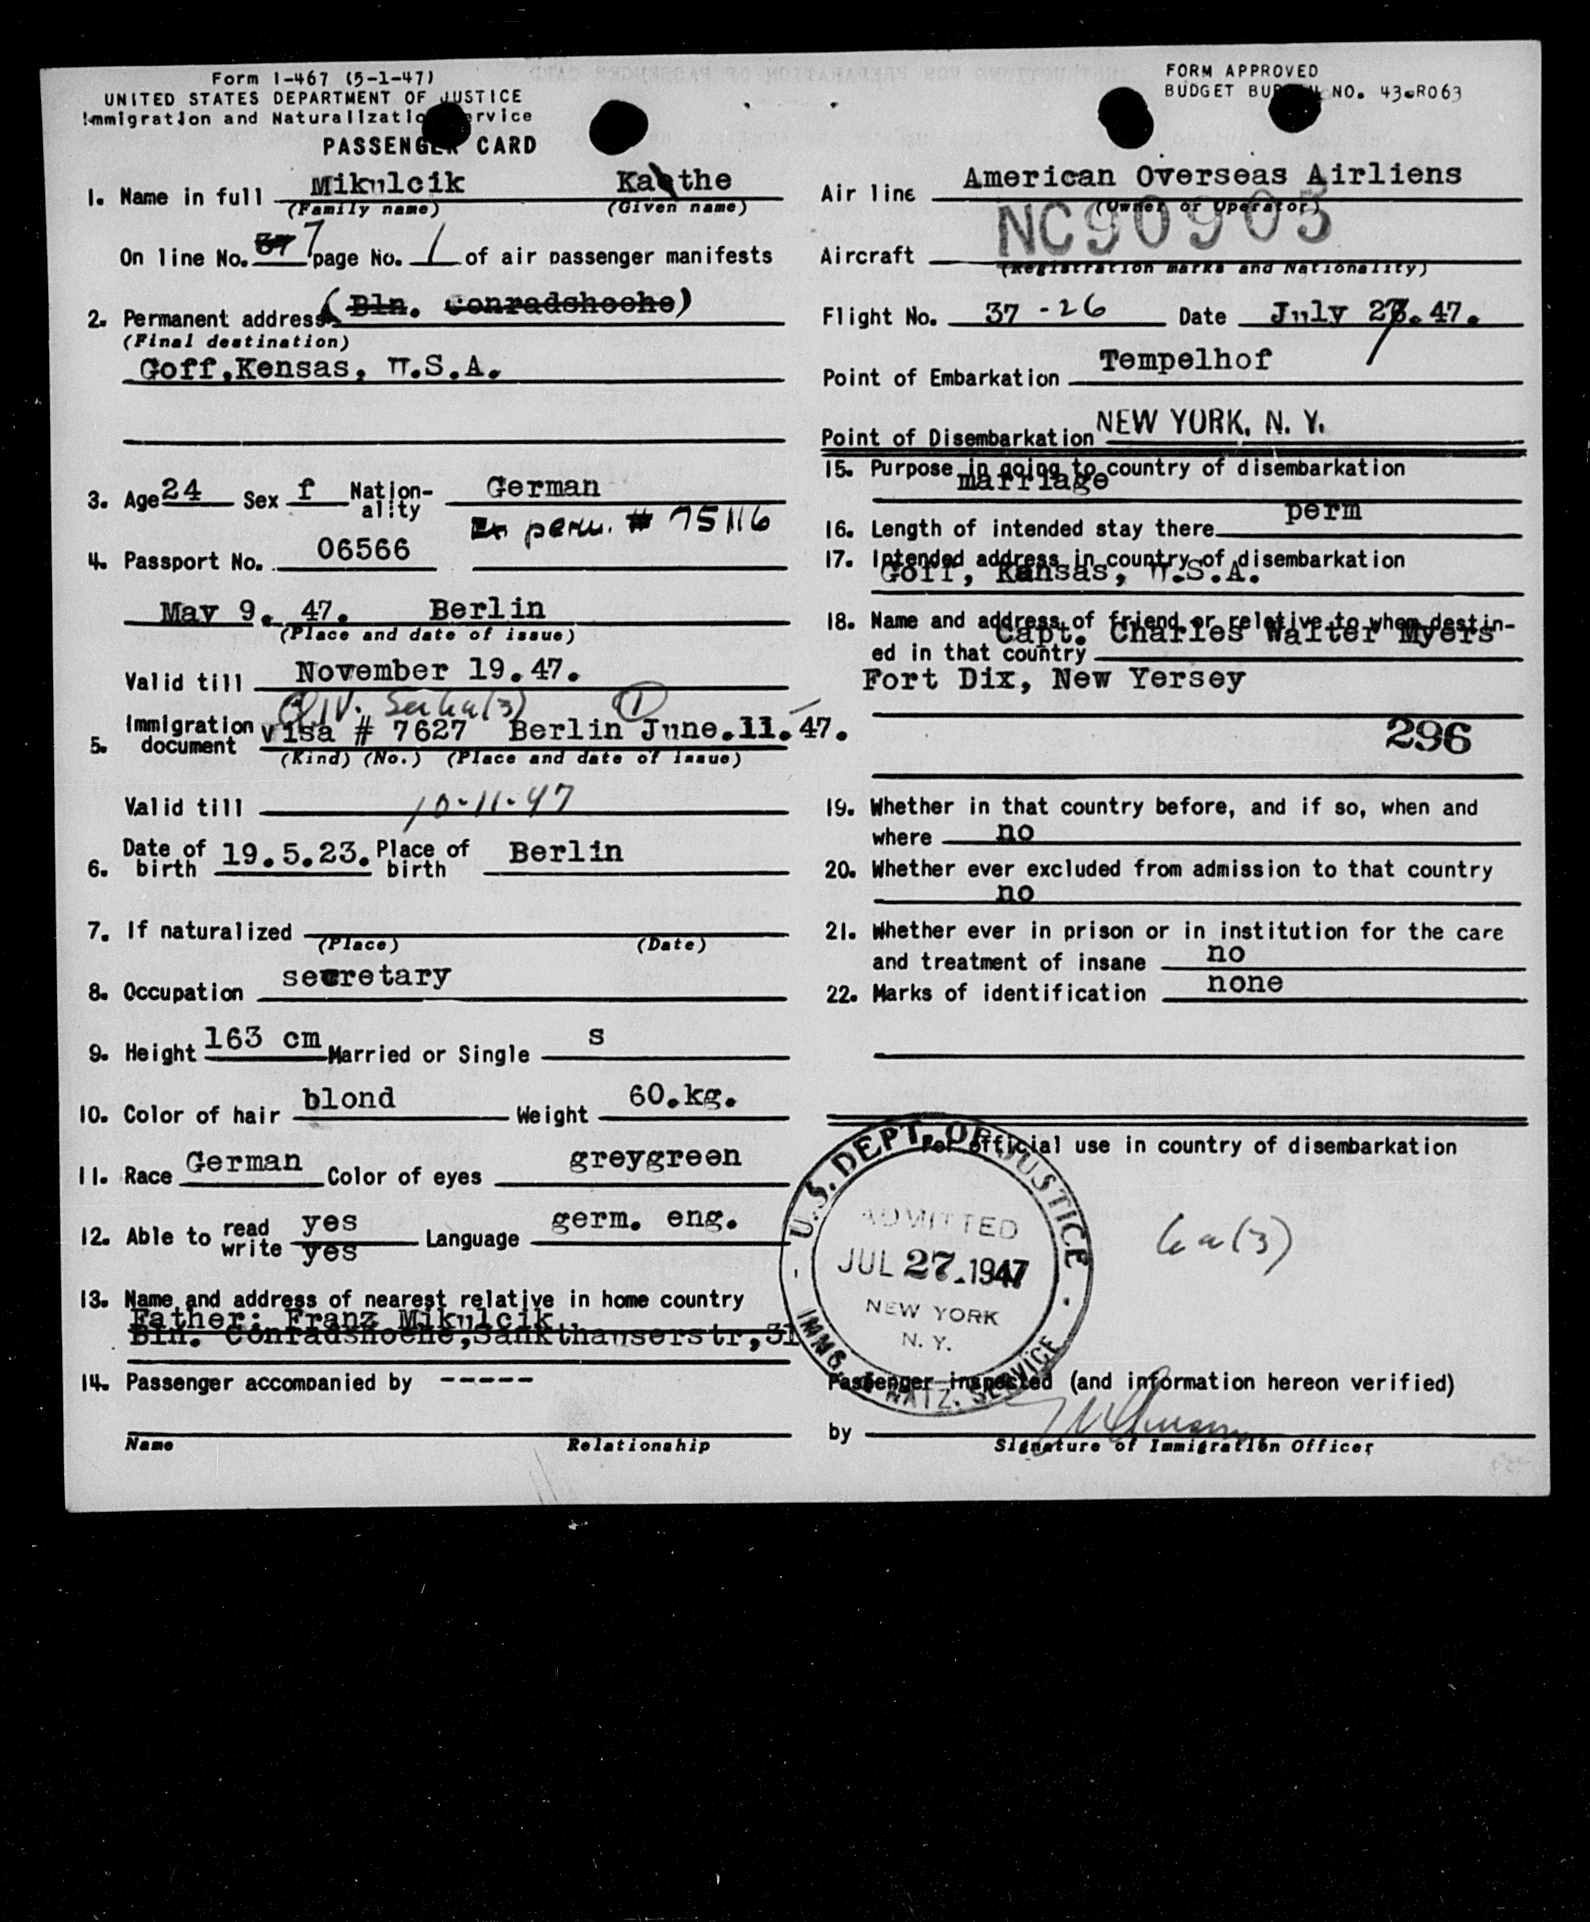 Form I-467 (5-1-47)
UNITED STATES DEPARTMENT OF JUSTICE
Immigration and Naturalization Service
PASSENGER CARD
FORM APPROVED
BUDGET BUREAU NO. 43-R063
1. Name in full Mikulcik Kaethe
(Family name) (Given name)
On line No. 37 7 page No. 1 of air passenger manifests
2. Permanent address (Bln. Conradshoehe)
(Final destination)
Goff,Kensas, U.S.A.
3. Age 24 Sex f Nation-ality German
Ex perm. # 75116
4. Passport No. 06566
May 9. 47. Berlin
(Place and date of issue)
Valid till November 19.47.
5. Immigration document Visa # 7627 Berlin June.11.47.
(Kind) (No.) (Place and date of issue)
Valid till 10-11-47
6. Date of birth 19.5.23. Place of birth Berlin
7. If naturalized
(Place) (Date)
8. Occupation secretary
9. Height 163 cm Married or Single s
10. Color of hair blond Weight 60.kg.
11. Race German Color of eyes greygreen
12. Able to read yes write yes Language germ. eng.
13. Name and address of nearest relative in home country
Father: Franz Mikulcik
Bln. Conradshoehe,Sankthauserstr,31
14. Passenger accompanied by -----
Name Relationship
Air line American Overseas Airliens
(Owner or Operator)
Aircraft NC90905
(Registration marks and Nationality)
Flight No. 37 -26 Date July 27.47.
Point of Embarkation Tempelhof
Point of Disembarkation NEW YORK, N. Y.
15. Purpose in going to country of disembarkation
marriage
16. Length of intended stay there perm
17. Intended address in country of disembarkation
Goff, Kansas, U.S.A.
18. Name and address of friend or relative to whom destin-
ed in that country Capt. Charles Walter Myers
Fort Dix, New Yersey
296
19. Whether in that country before, and if so, when and
where no
20. Whether ever excluded from admission to that country
no
21. Whether ever in prison or in institution for the care
and treatment of insane no
22. Marks of identification none
For official use in country of disembarkation
U.S. DEPT. OF JUSTICE
ADMITTED
JUL 27 1947
NEW YORK
N. Y.
IMMG. & NATZ. SERVICE
6a(3)
Passenger inspected (and information hereon verified)
by
Signature of Immigration Officer